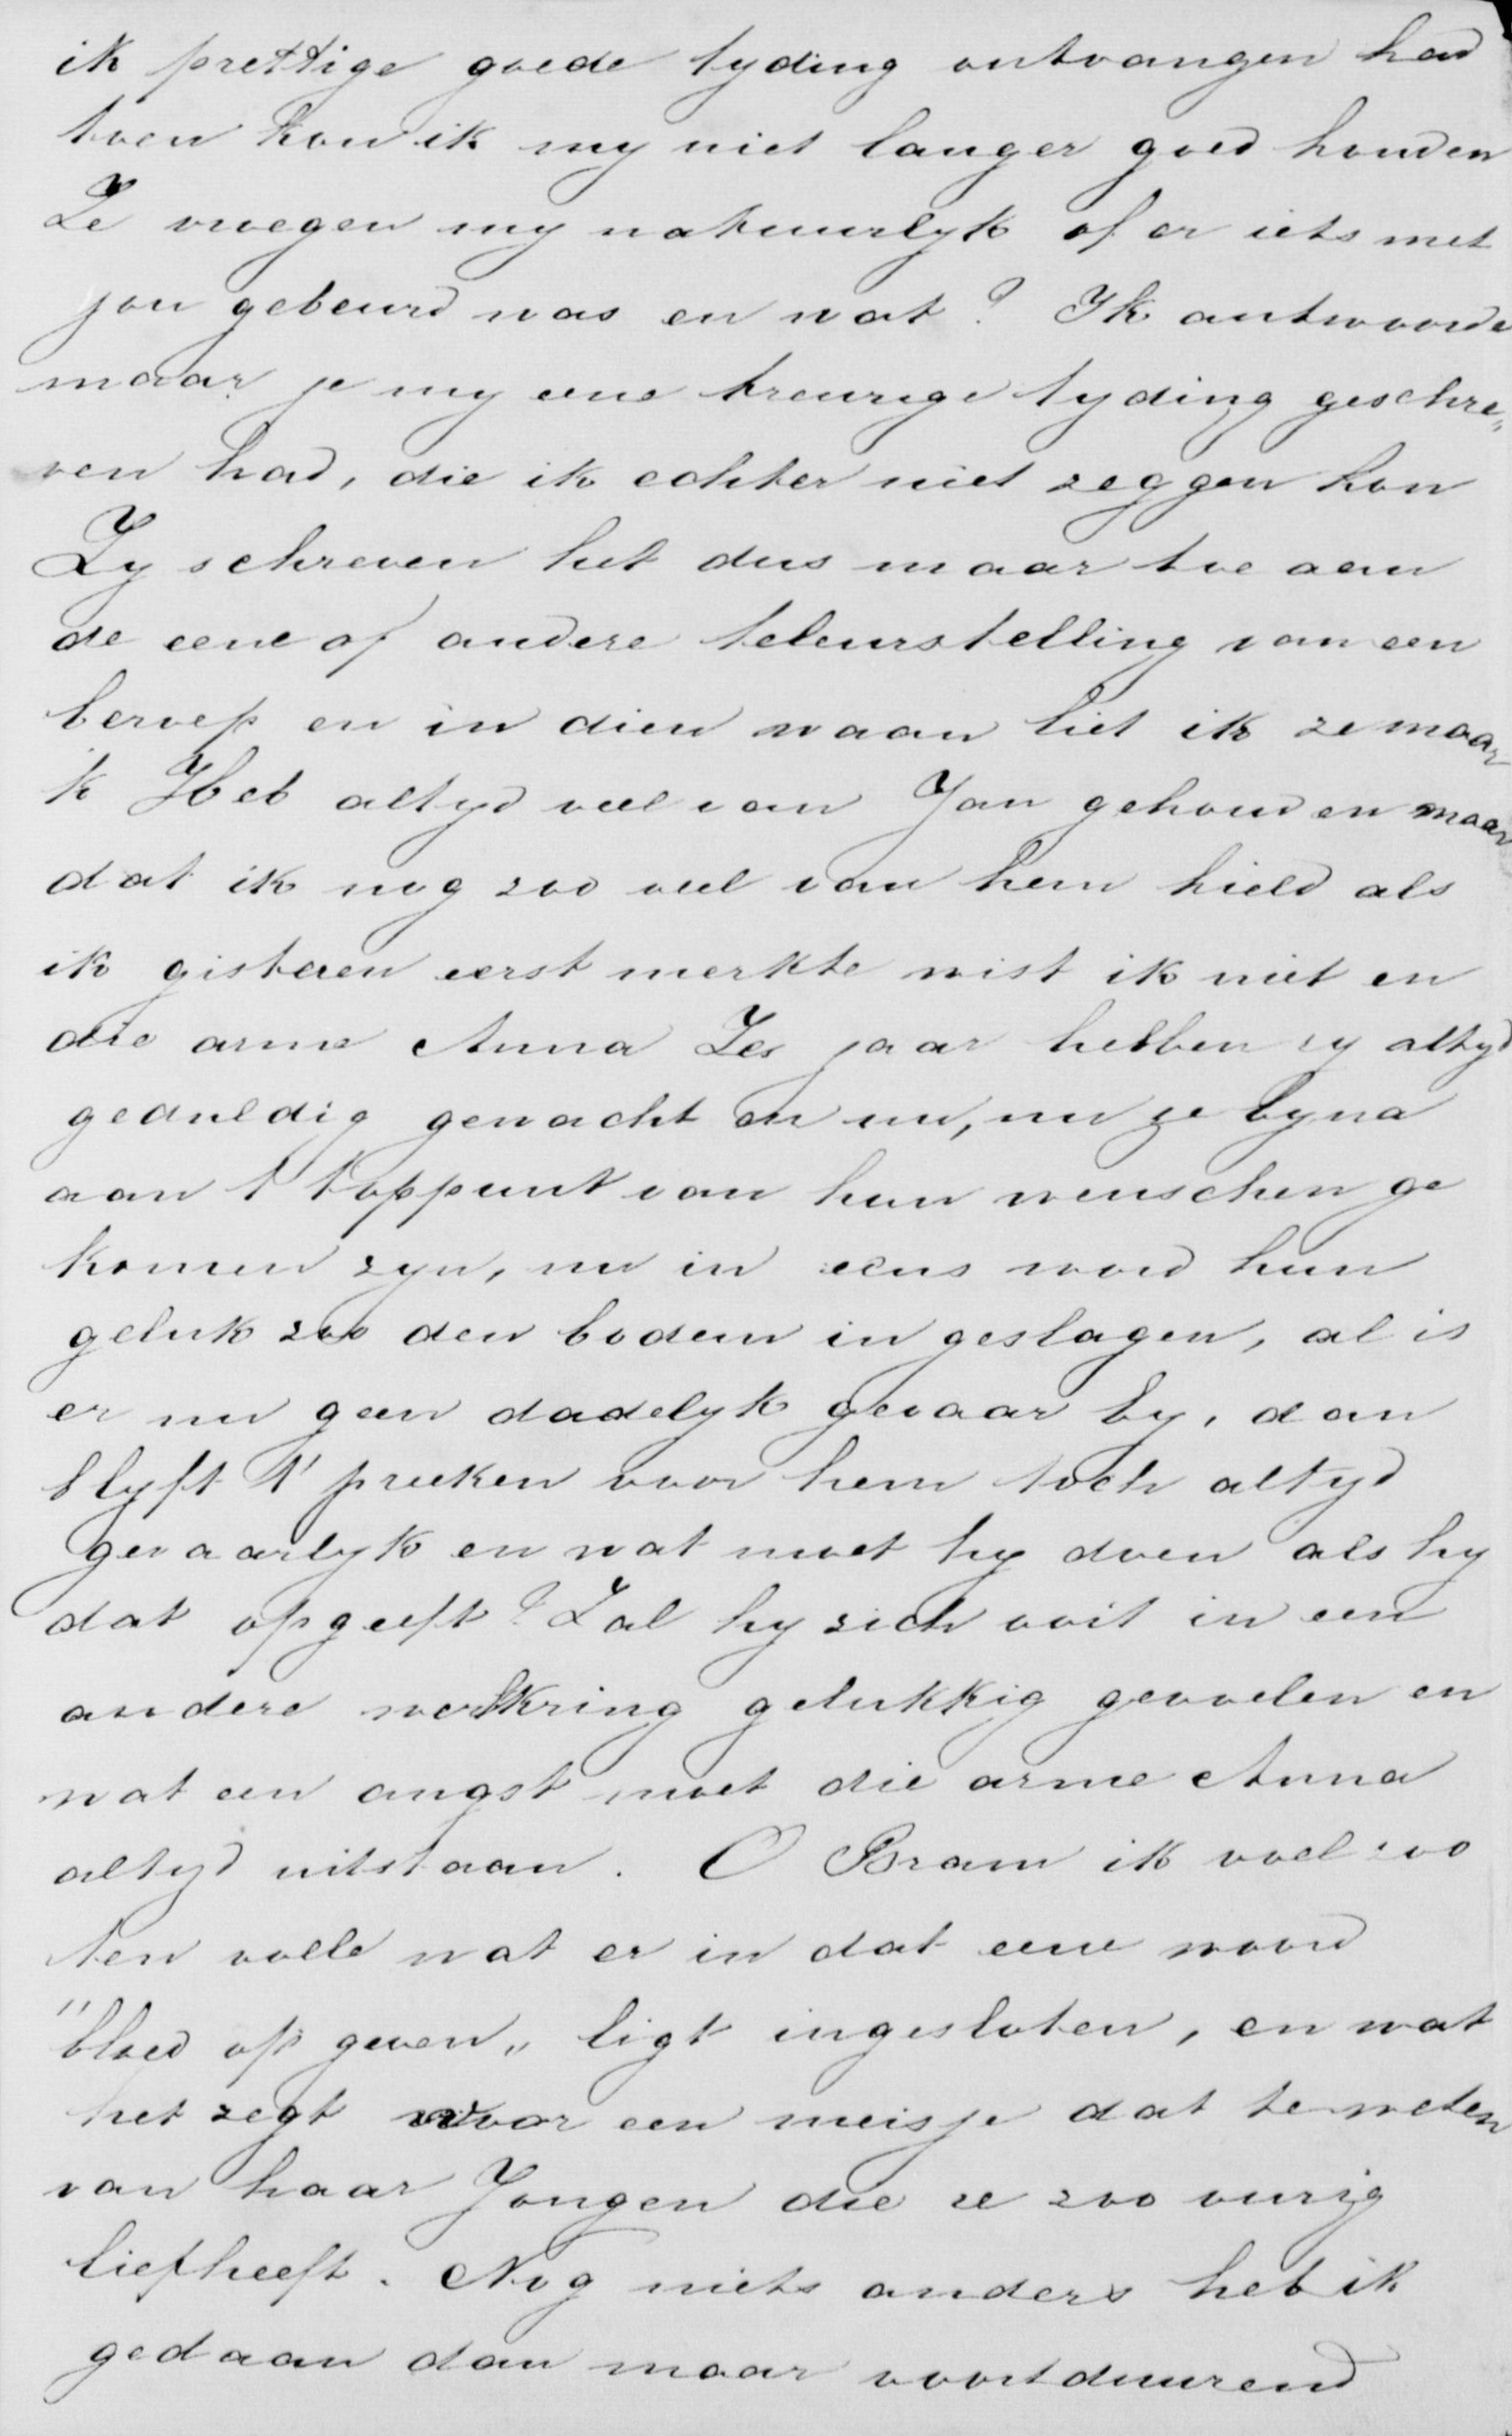 ik prettige goede tyding ontvangen had
toen kon ik my niet langer goed houden
Ze vroegen my natuurlyk of er iets met
jou gebeurd was en wat? Ik antwoorde
maar je my eene treurige tyding geschre„
ven had, die ik echter niet zeggen kon
Zy schreven het dus maar toe aan
de eene of andere teleurstelling van een
beroep en in dien waan liet ik ze maar
k Heb altyd veel van Jan gehouden maar
dat ik nog zoo veel van hem hield als
ik gisteren eerst merkte wist ik niet en
die arme Anna Zes jaar hebben zy altyd
geduldig gewacht en nu, nu ze byna
aan t toppunt van hun wenschen ge
komen zyn, nu in eens word hun
geluk zoo den bodem in geslagen, al is
er nu geen dadelyk gevaar by, dan
blyft t' preeken voor hem toch altyd
gevaarlyk en wat moet hy doen als hy
dat opgeeft? Zal hy zich ooit in een
andere werkkring gelukkig gevoelen en
wat een angst moet die arme Anna
altyd uitstaan. O Bram ik voel zoo
ten volle wat er in dat eene woord
"bloed op geven„ ligt ingesloten, en wat
het zegt voor een meisje dat te weten
van haar Jongen die ze zoo vurig
liefheeft. Nog niets anders heb ik
gedaan dan maar voortduurend